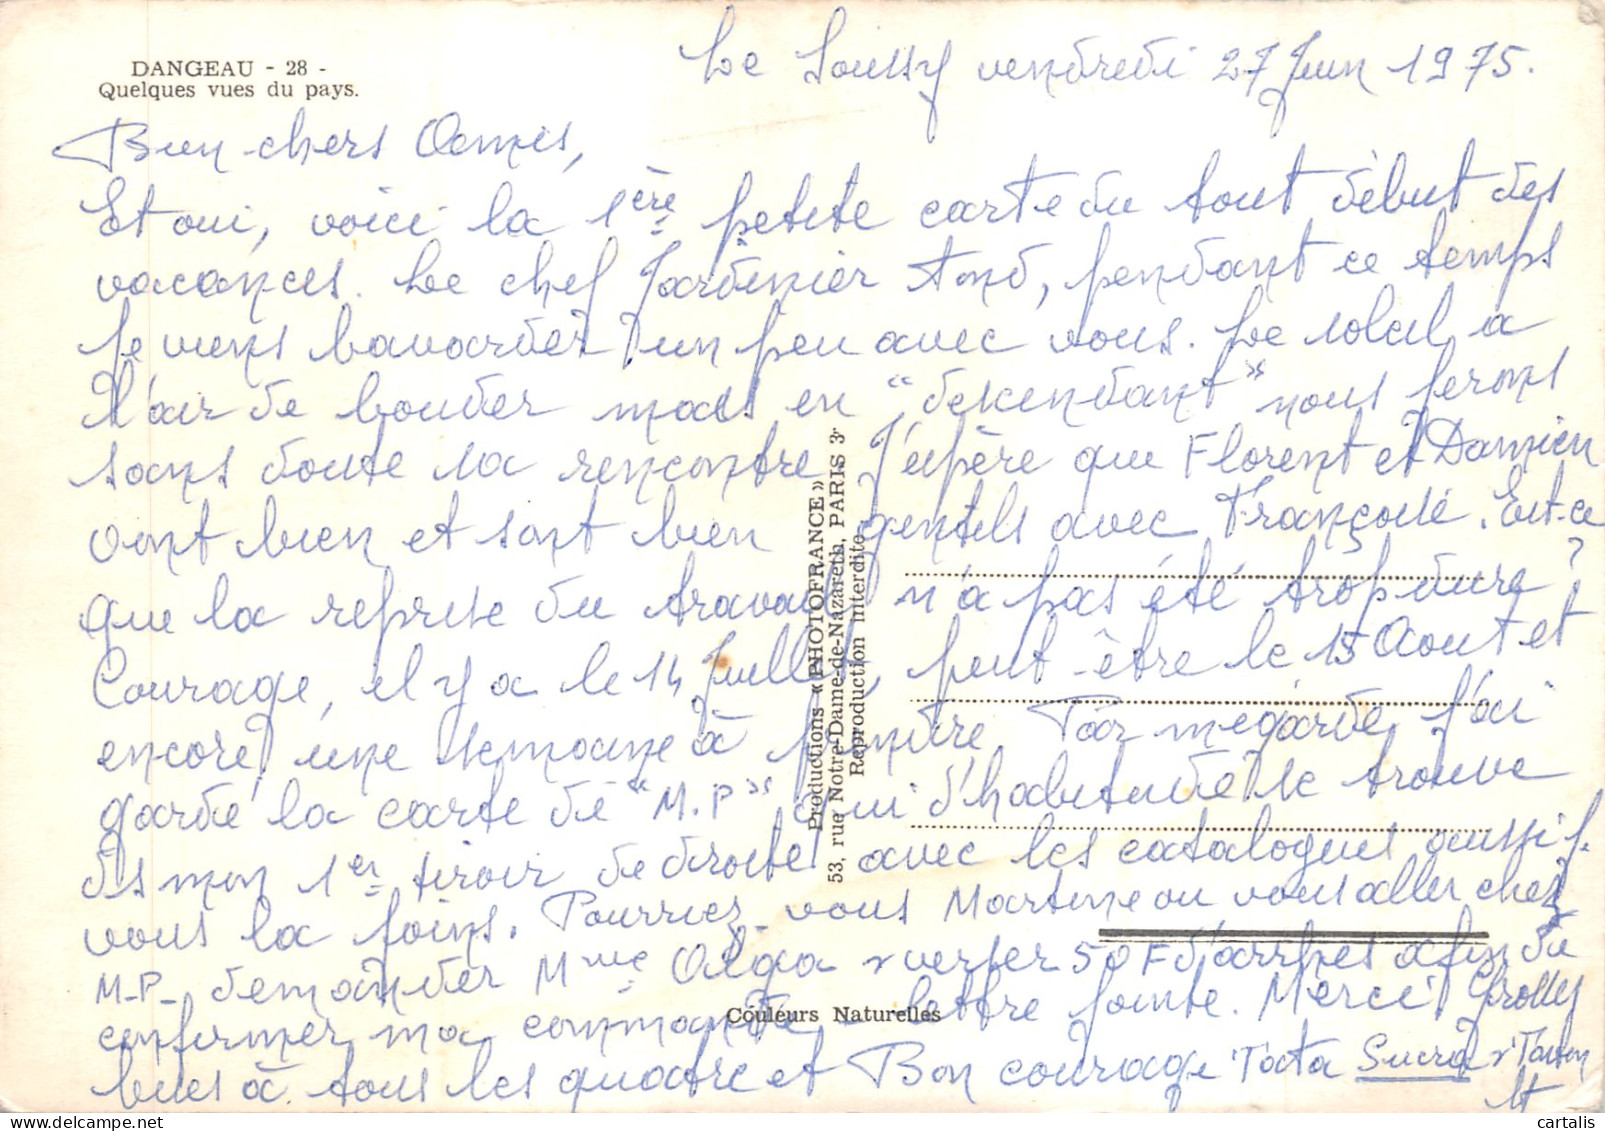 DANGEAU - 28 -
Quelques vues du pays.
Le vendredi 27 Juin 1975.
Bien chers Amis,
Et oui, voici la 1ère petite carte du tout début des
vacances. Le chef Jardinier tond, pendant ce temps
je viens bavarder un peu avec vous. Le soleil a
l'air de bouder mais en "descendant" nous ferons
sans doute sa rencontre. J'espère que Florent et Damien
vont bien et sont bien gentils avec Françoise. Est-ce
que la reprise du travail n'a pas été trop dure ?
Courage, il y a le 14 Juillet, peut-être le 15 Aout et
encore une semaine à prendre. Par mégarde, j'ai
gardé la carte de "M.P" qui d'habitude se trouve
ds mon 1er tiroir de droite avec les catalogues aussi.
vous la joins. Pourriez-vous Martine ou vous aller chez
M-P- demander Mme Olga & verser 50F d'arrhes afin de
confirmer ma commande - lettre jointe. Merci
bises à tous les quatre et Bon courage Tata Sucra & Tonton
Productions « PHOTOFRANCE »
53, rue Notre-Dame-de-Nazareth, PARIS 3e
Reproduction interdite
Couleurs Naturelles
cartalis